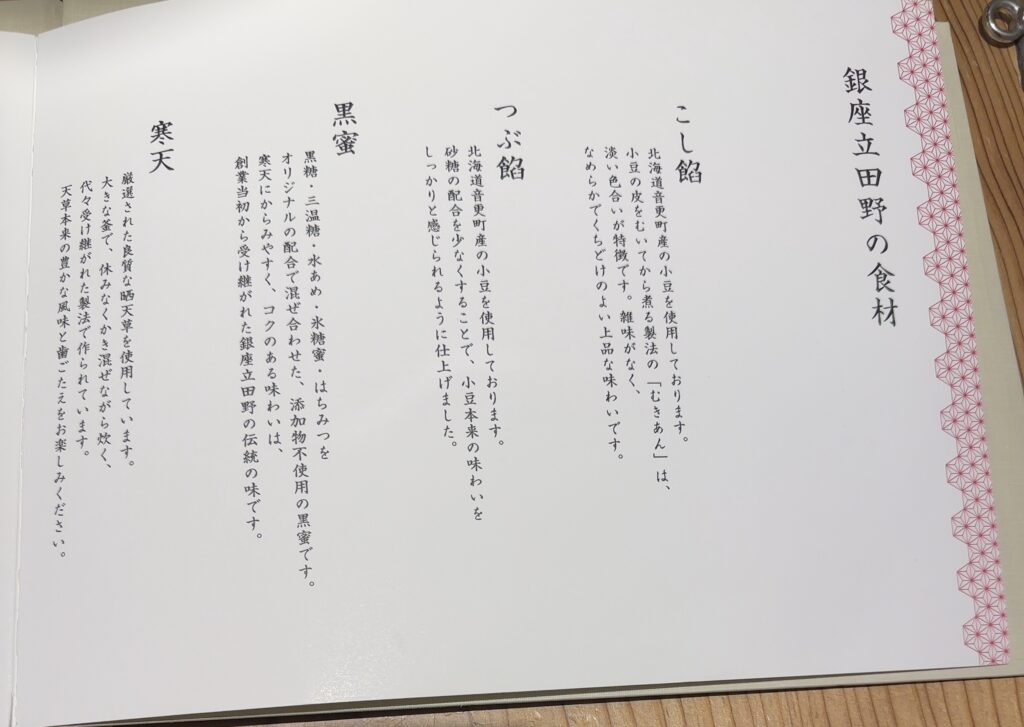 銀座立田野の食材
こし餡
北海道音更町産の小豆を使用しております。
小豆の皮をむいてから煮る製法の「むきあん」は、
淡い色合いが特徴です。雑味がなく、
なめらかでくちどけのよい上品な味わいです。
つぶ餡
北海道音更町産の小豆を使用しております。
砂糖の配合を少なくすることで、小豆本来の味わいを
しっかりと感じられるように仕上げました。
黒蜜
黒糖・三温糖・水あめ・氷糖蜜・はちみつを
オリジナルの配合で混ぜ合わせた、添加物不使用の黒蜜です。
寒天にからみやすく、コクのある味わいは、
創業当初から受け継がれた銀座立田野の伝統の味です。
寒天
厳選された良質な晒天草を使用しています。
大きな釜で、休みなくかき混ぜながら炊く、
代々受け継がれた製法で作られています。
天草本来の豊かな風味と歯ごたえをお楽しみください。